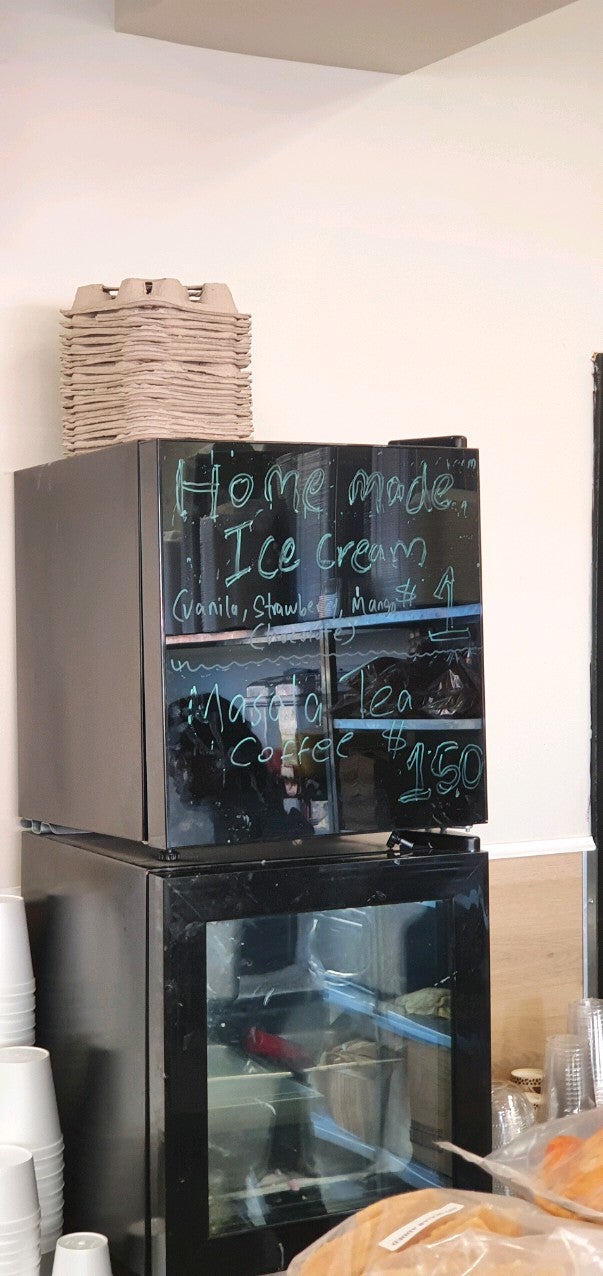 Home made
Ice cream
(vanila, Strawberry, Mango $ 1
Chocolate)
Masala Tea
Coffee $ 150